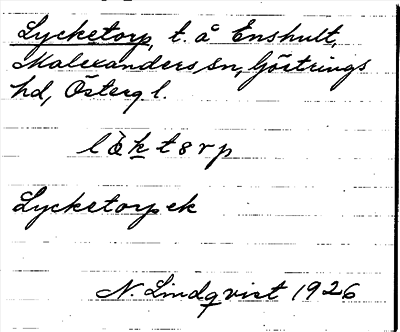 Lycketorp, t. å Enshult,
Malexanders sn, Göstrings
hd, Österg.l.
lòktsrp
Lycketorp ek
N. Lindqvist 1926